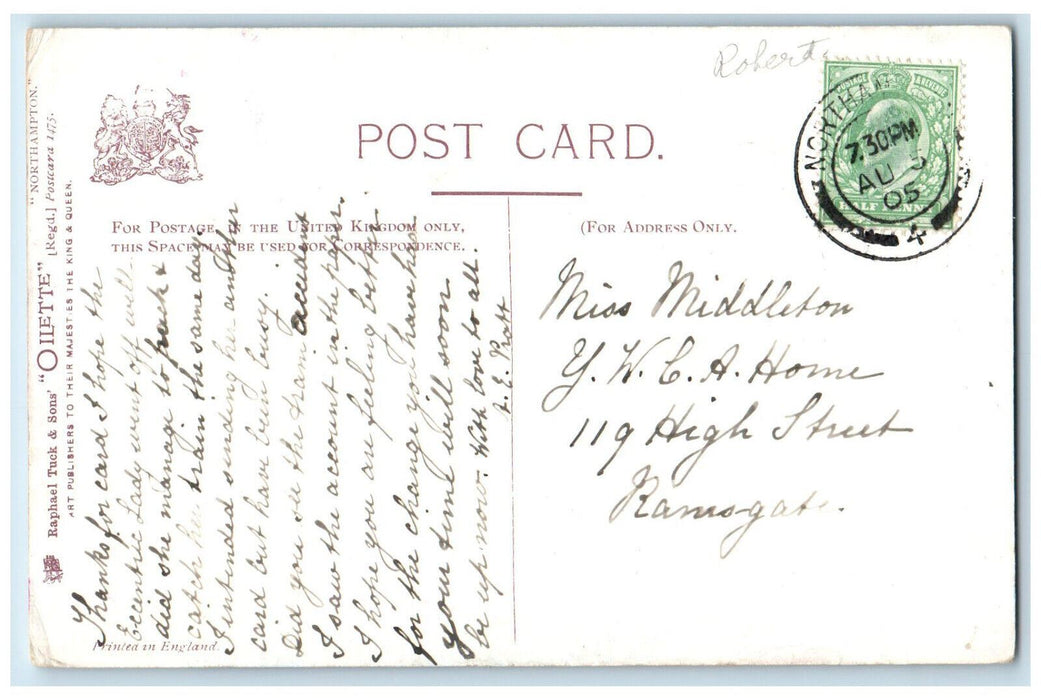 Robert
"NORTHAMPTON."
Raphael Tuck & Sons' "OILETTE" [Regd.] Postcard 1475.
ART PUBLISHERS TO THEIR MAJESTIES THE KING & QUEEN.
POST CARD.
FOR POSTAGE IN THE UNITED KINGDOM ONLY,
THIS SPACE MAY BE USED FOR CORRESPONDENCE.
(FOR ADDRESS ONLY.
NORTHAM
7.30PM
AU
05
4
HALF PENNY
POSTAGE & REVENUE
Thanks for card I hope the
Eccentric Lady went off well
did she manage to pack &
catch her train the same day
I intended sending her another
card but have been busy.
Did you see the tram accident
I saw the account in the paper.
I hope you are feeling better
for the change you have had
your time will soon
be up now. With love to all.
E. Pratt
Miss Middleton
Y.W.C.A. Home
119 High Street
Ramsgate.
Printed in England.